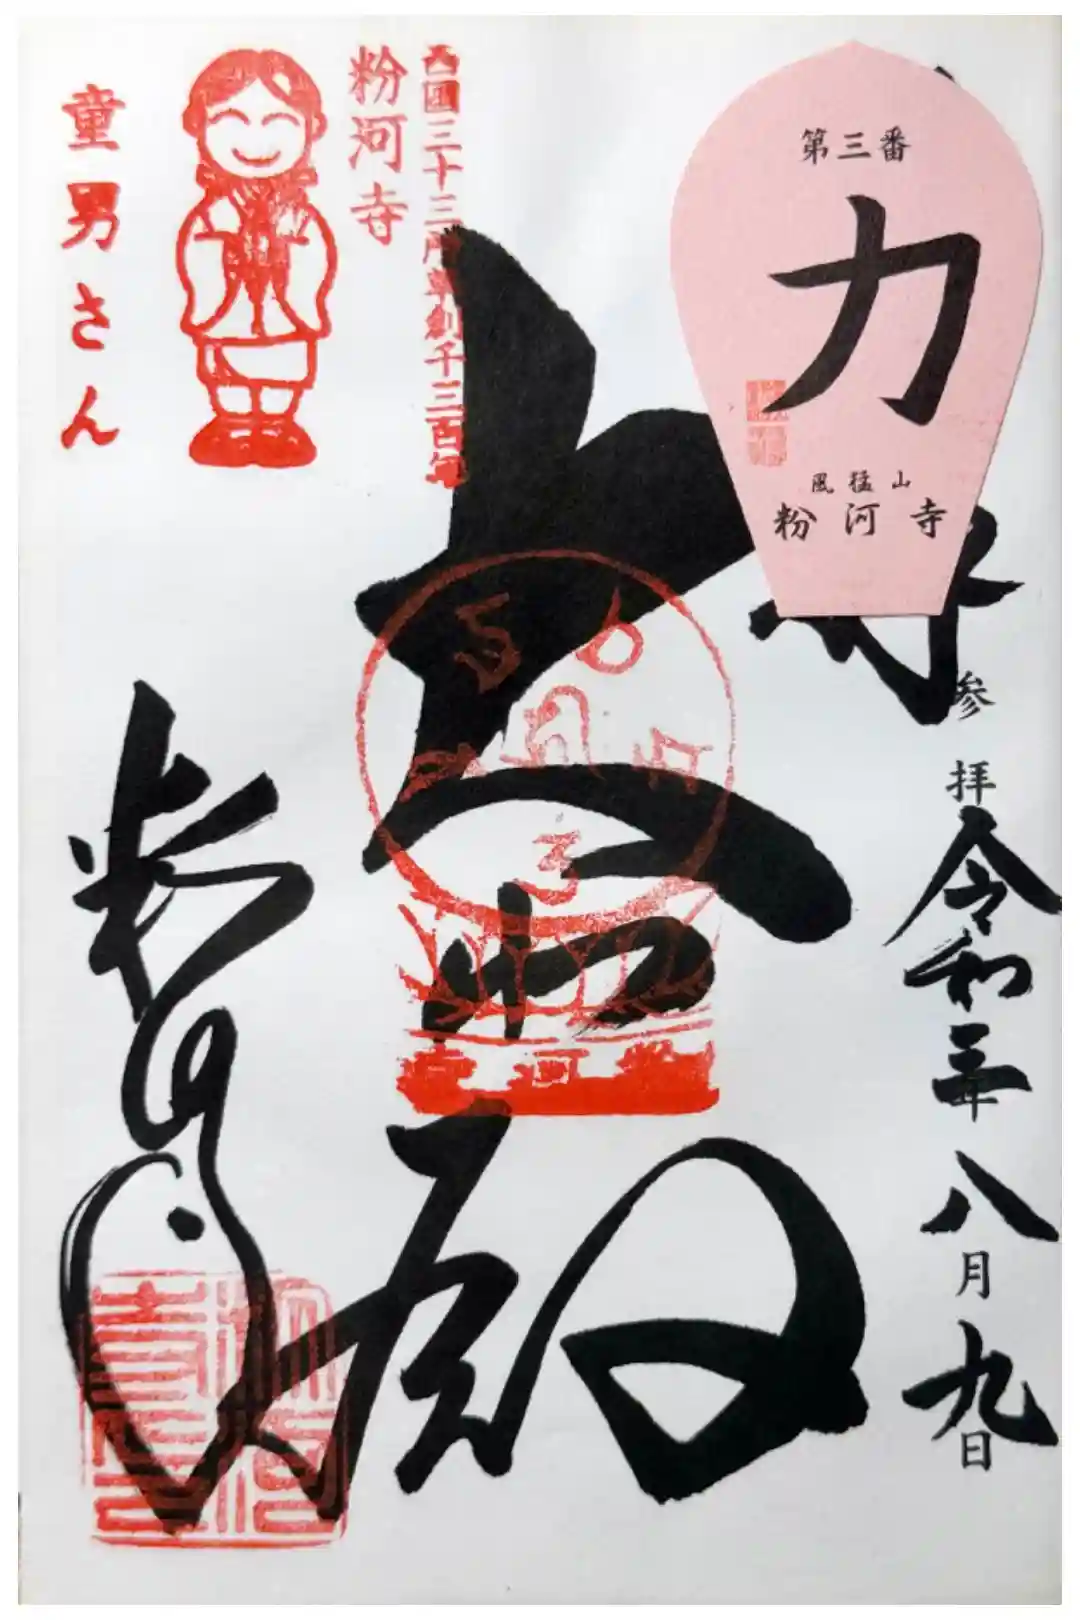 第三番
力
風猛山
粉河寺
参拝
令和三年八月九日
西國三十三所草創千三百年
粉河寺
童男さん
大悲殿
粉河寺